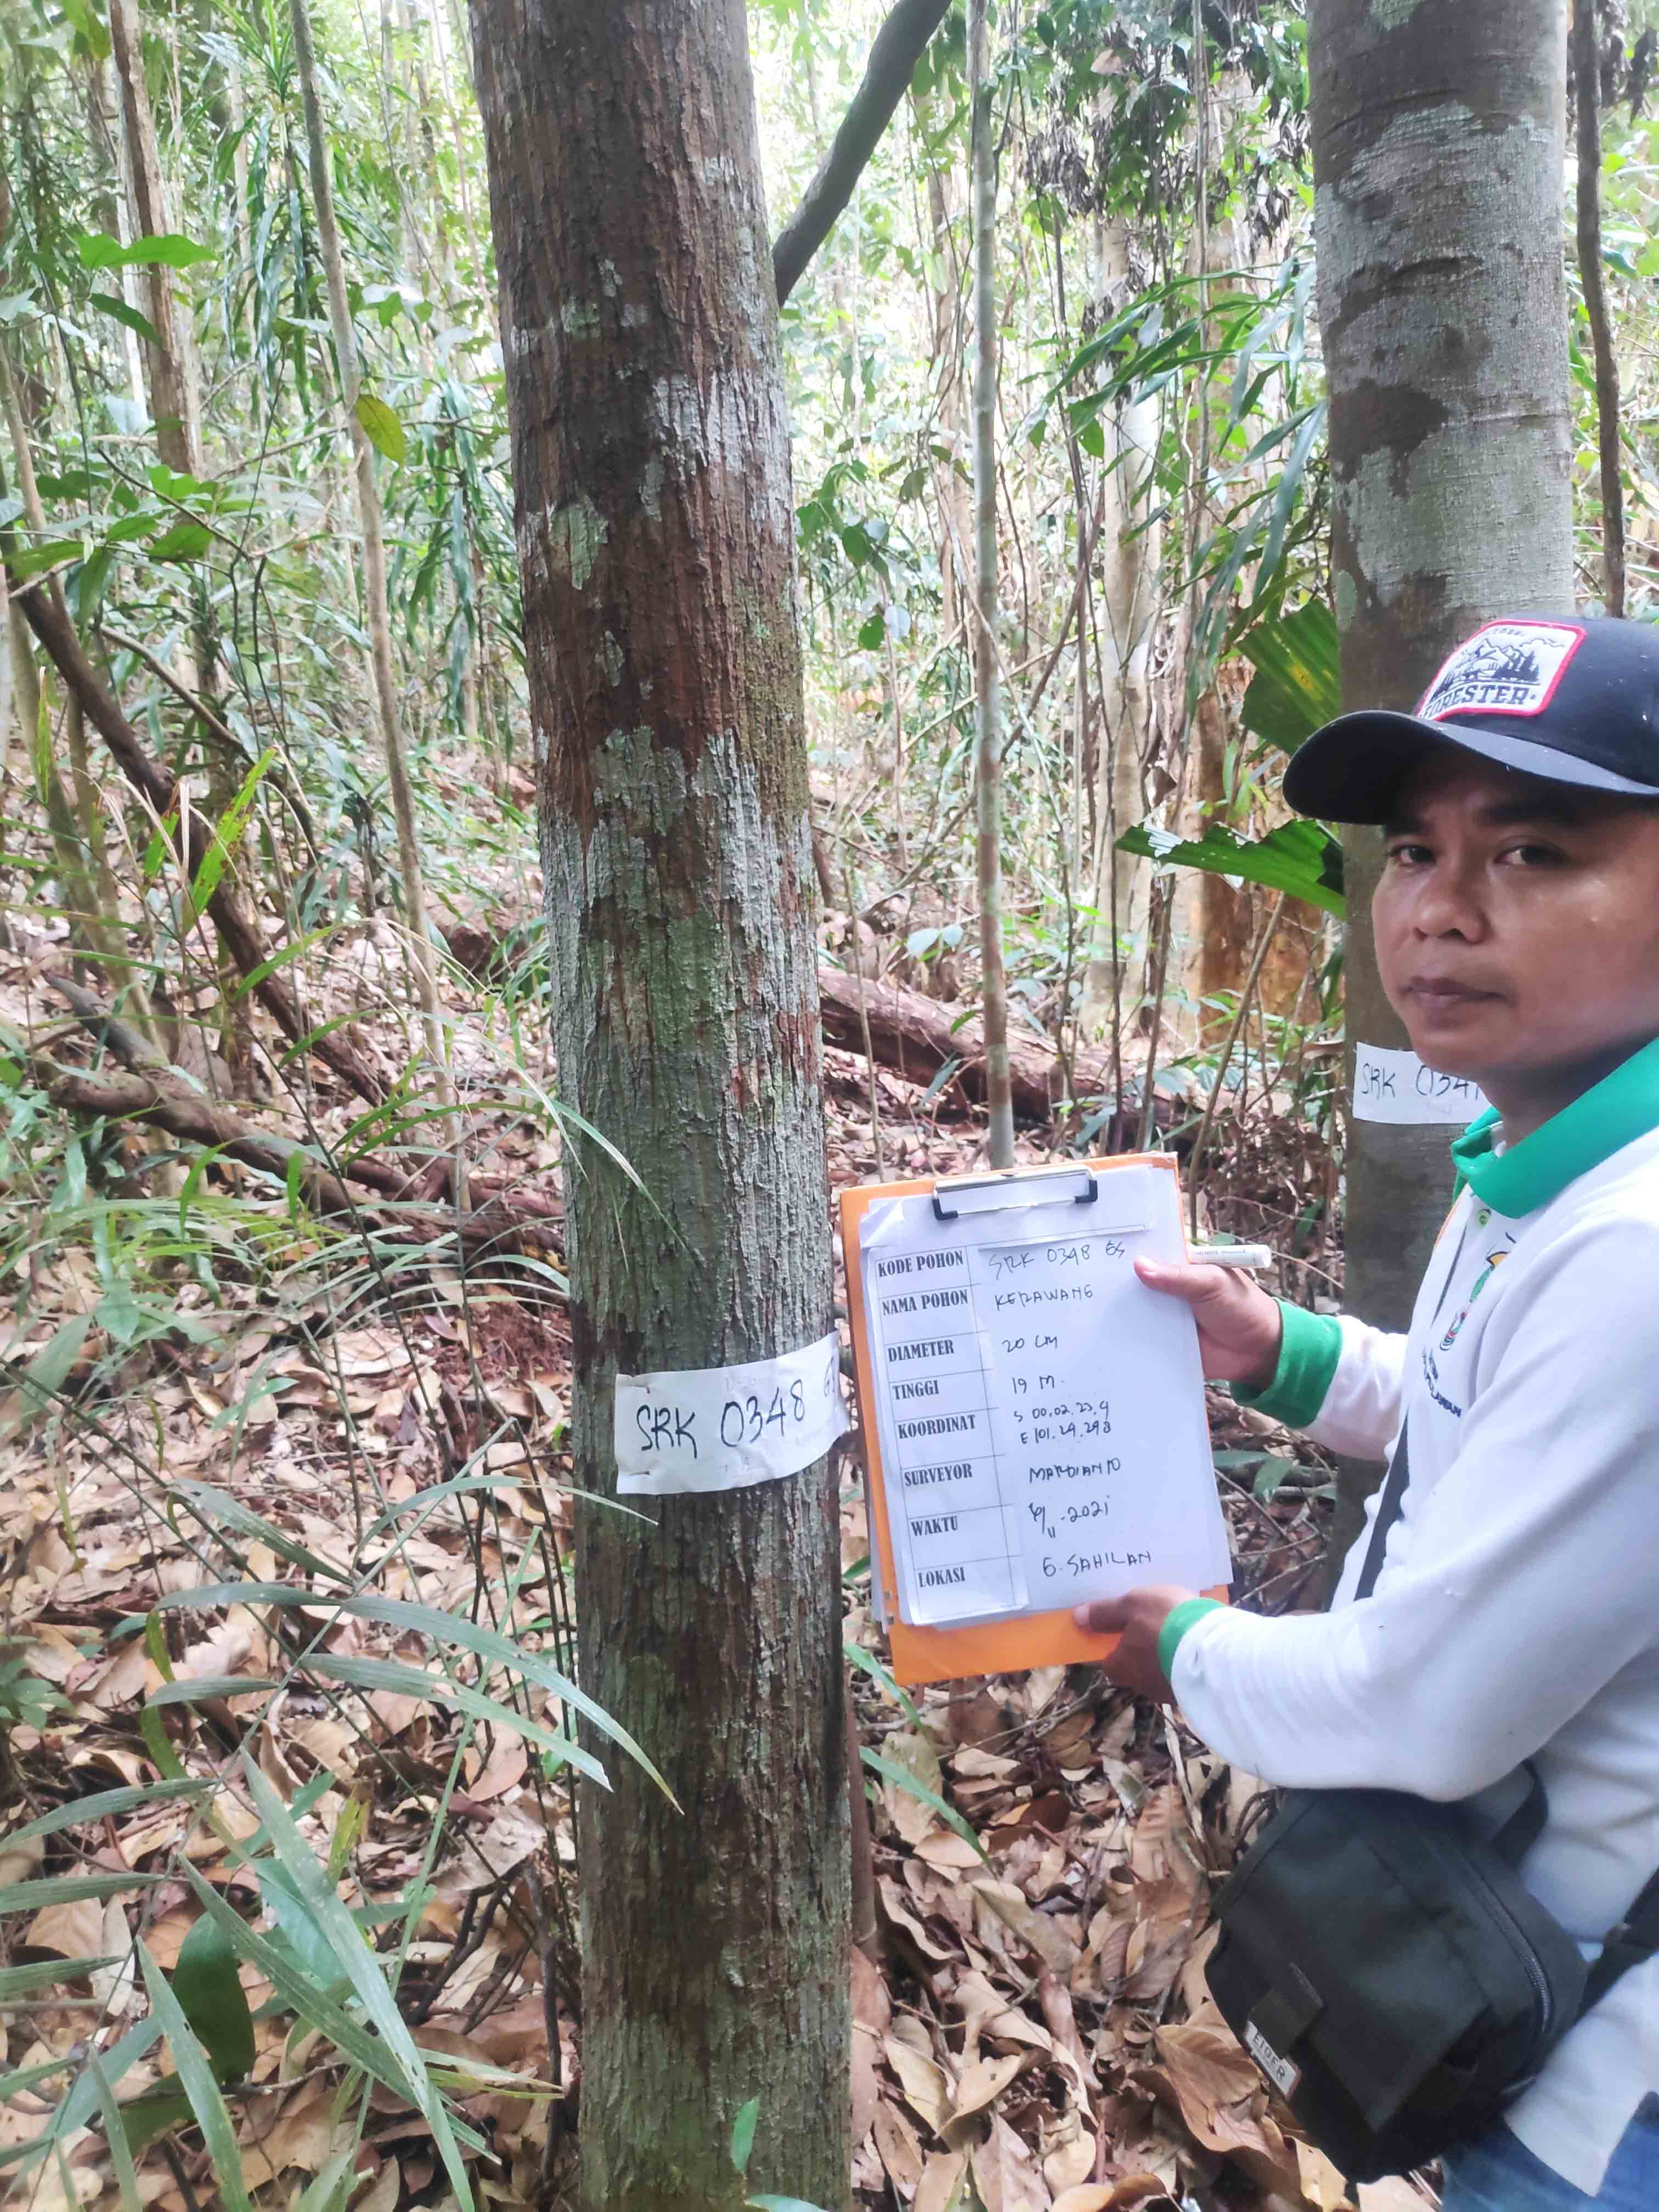 FORESTER
SRK 034
SRK 0348 GS
KODE POHON SRK 0348 GS
NAMA POHON KERAWANG
DIAMETER 20 CM
TINGGI 19 M.
KOORDINAT S 00.02.23.4
E 101.29.298
SURVEYOR MARDIANTO
WAKTU /11.2021
LOKASI G.SAHILAN
EIGER